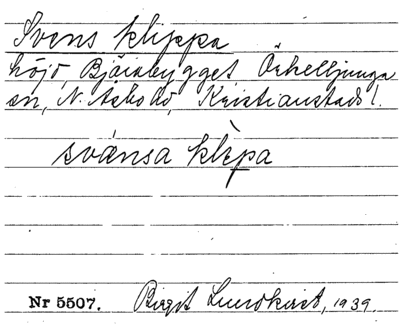 Svens klippa
höjd, Bjärabygget Örkelljunga
sn, N. Åsbo hd, Kristianstads l.
svänsa klèpa
Nr 5507. Birgit Lundkvist, 1939.